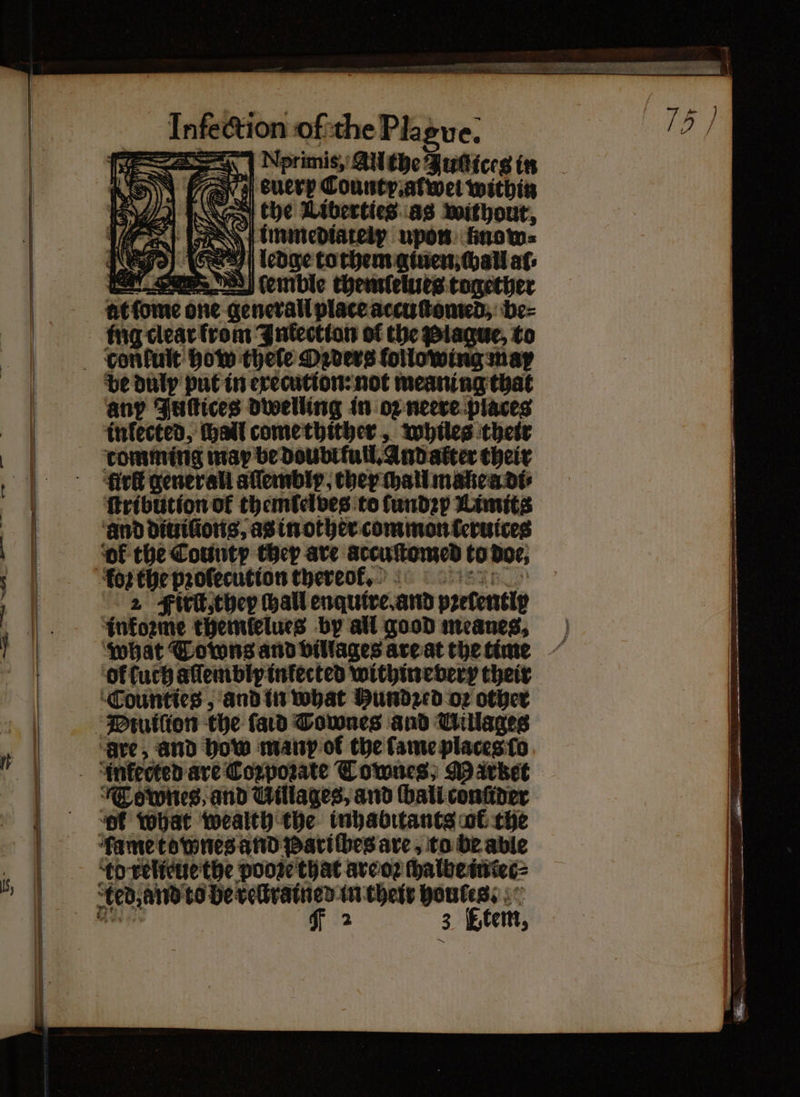 Infection of the Plague.
75)
INprimis, All the Justices in
euery County, aswel within
the Liberties as without,
immediately vpon know-
ledge to them giuen, shall as-
semble themselues together
at some one generall place accustomed, be-
ing clear from Infection of the Plague, to
consult how these Orders following may
be duly put in execution: not meaning that
any Justices dwelling in or neere places
infected, shall come thither, whiles their
comming may be doubtfull. And after their
first generall assembly, they shall make a di-
stribution of themselves to sundry Limits
and diuisions, as in other common seruices
of the County they are accustomed to doe,
for the prosecution thereof.
2 First, they shall enquire, and presently
informe themselues by all good meanes,
what Towns and villages are at the time
of such assembly infected within every their
Counties, and in what Hundred or other
Diuision the said Townes and Villages
are, and how many of the same places so
infected are Corporate Townes, Market
Townes, and Villages, and shall consider
of what wealth the inhabitants of the
same townes and Parishes are, to be able
to relieue the poore that are or shalbe infec-
ted, and to be restrained in their houses.
F 2 3 Item,